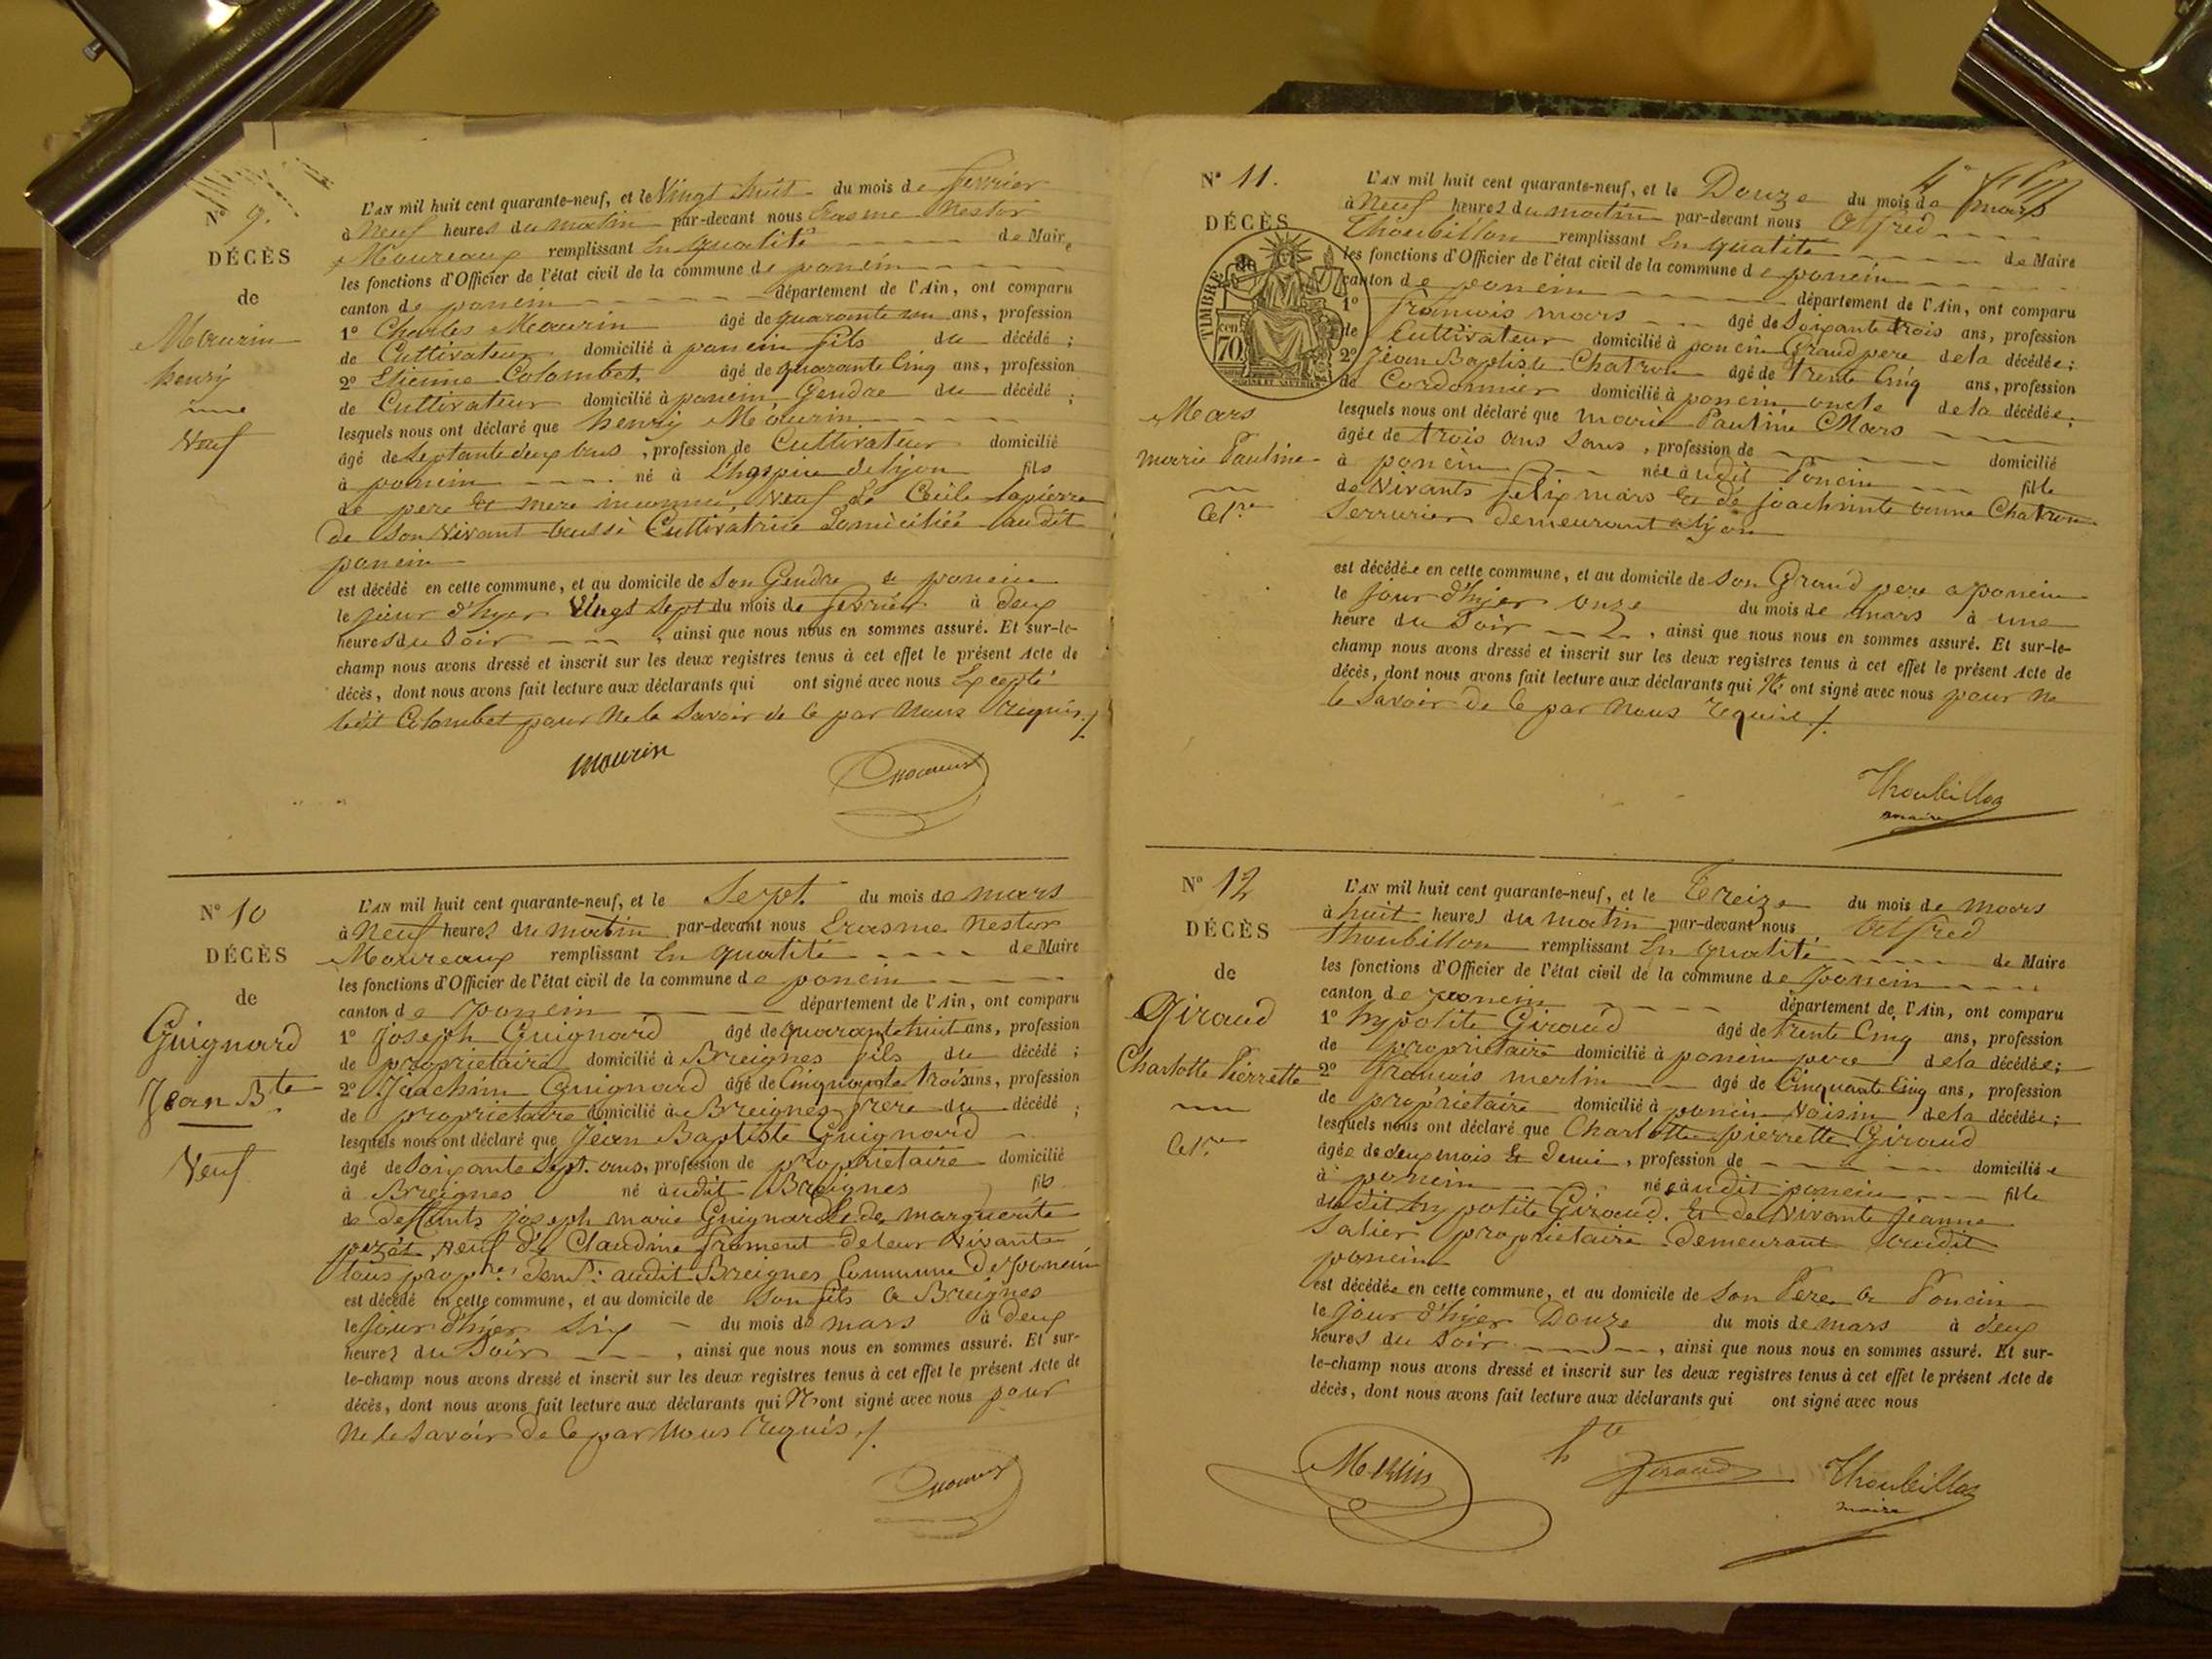 N° 9.
DÉCÈS
de
Maurin
henry
Veuf
L'AN mil huit cent quarante-neuf, et le Vingt huit du mois de fevrier
à Neuf heures du matin par-devant nous Erasme Nestor
Moureaux remplissant En qualité de Maire
les fonctions d'Officier de l'état civil de la commune de poncin
canton de poncin département de l'Ain, ont comparu
1° Charles Maurin âgé de quarante un ans, profession
de Cultivateur domicilié à poncin fils du décédé ;
2° Etienne Colombet, âgé de quarante Cinq ans, profession
de Cultivateur domicilié à poncin Gendre du décédé ;
lesquels nous ont déclaré que henry Maurin
âgé de septante deux ans , profession de Cultivateur domicilié
à poncin né à L'hospice de lyon fils
de pere et mere inconnu, Veuf de Cécile lapierre
de Son Vivant aussi Cultivatrice Domiciliée audit
poncin
est décédé en cette commune, et au domicile de Son Gendre a poncin
le jour d'hyer Vingt Sept du mois de fevrier à deux
heures du Soir , ainsi que nous nous en sommes assuré. Et sur-le-
champ nous avons dressé et inscrit sur les deux registres tenus à cet effet le présent Acte de
décès, dont nous avons fait lecture aux déclarants qui ont signé avec nous Excepté
ledit Colombet pour Ne le Savoir de Ce par Nous requis ./.
Maurin
N° 10
DÉCÈS
de
Guignard
Jean Bte
Veuf
L'AN mil huit cent quarante-neuf, et le Sept. du mois de mars
à Neuf heures du matin par-devant nous Erasme Nestor
Moureaux remplissant En qualité de Maire
les fonctions d'Officier de l'état civil de la commune de poncin
canton de poncin département de l'Ain, ont comparu
1° Joseph Guignard âgé de quarante huit ans, profession
de proprietaire domicilié à Breignes fils du décédé ;
2° Joachim Guignard âgé de Cinquante trois ans, profession
de proprietaire domicilié à Breignes frere du décédé ;
lesquels nous ont déclaré que Jean Baptiste Guignard
âgé de Soixante Sept. ans, profession de proprietaire domicilié
à Breignes né audit Breignes fils
de deffunts joseph marie Guignard et de marguerite
veuf de Claudine froment de leur vivante
tous propres demts audit Breignes Commune de poncin
est décédé en cette commune, et au domicile de Son fils a Breignes
le Jour d'hyer Six du mois de mars à deux
heures du Soir , ainsi que nous nous en sommes assuré. Et sur-
le-champ nous avons dressé et inscrit sur les deux registres tenus à cet effet le présent Acte de
décès, dont nous avons fait lecture aux déclarants qui N'ont signé avec nous pour
Ne le Savoir de Ce par Nous requis ./.
N° 11.
DÉCÈS
TIMBRE
70
Mars
marie Pauline
Celre
L'AN mil huit cent quarante-neuf, et le Douze du mois de mars
à Neuf heures du matin par-devant nous Alfred
Thoubillon remplissant En qualité de Maire
les fonctions d'Officier de l'état civil de la commune de poncin
canton de poncin département de l'Ain, ont comparu
1° françois mars âgé de Soixante trois ans, profession
de Cultivateur domicilié à poncin Grand pere de la décédée ;
2° Jean Baptiste Chatron âgé de Trente Cinq ans, profession
de Cordonnier domicilié à poncin oncle de la décédée ;
lesquels nous ont déclaré que marie Pauline Mars
âgée de trois ans Sans , profession de domicilié
à poncin née audit Poncin fille
de Vivants felix mars Et de joachinte anne Chatron
Serrurier demeurant a lyon
est décédée en cette commune, et au domicile de Son Grand pere a poncin
le Jour d'hyer onze du mois de mars à une
heure du Soir , ainsi que nous nous en sommes assuré. Et sur-le-
champ nous avons dressé et inscrit sur les deux registres tenus à cet effet le présent Acte de
décès, dont nous avons fait lecture aux déclarants qui N' ont signé avec nous pour Ne
le Savoir de Ce par Nous requis ./.
Thoubillon
maire
N° 12
DÉCÈS
de
Giraud
Charlotte Pierrette
Celre
L'AN mil huit cent quarante-neuf, et le Treize du mois de mars
à huit heures du matin par-devant nous Alfred
Thoubillon remplissant En qualité de Maire
les fonctions d'Officier de l'état civil de la commune de poncin
canton de poncin département de l'Ain, ont comparu
1° hypolite Giraud âgé de trente Cinq ans, profession
de proprietaire domicilié à poncin pere de la décédée ;
2° françois merlin âgé de Cinquante Cinq ans, profession
de proprietaire domicilié à poncin Voisin de la décédée ;
lesquels nous ont déclaré que Charlotte pierrette Giraud
âgée de deux mois Et demi , profession de domiciliée
à poncin née audit poncin fille
dudit hypolite Giraud. Et de Vivante Jeanne
Salier proprietaire demeurant audit
poncin
est décédée en cette commune, et au domicile de Son Pere a Poncin
le Jour d'hyer Douze du mois de mars à deux
heures du Soir , ainsi que nous nous en sommes assuré. Et sur-
le-champ nous avons dressé et inscrit sur les deux registres tenus à cet effet le présent Acte de
décès, dont nous avons fait lecture aux déclarants qui ont signé avec nous
Merlin hte Giraud Thoubillon
maire